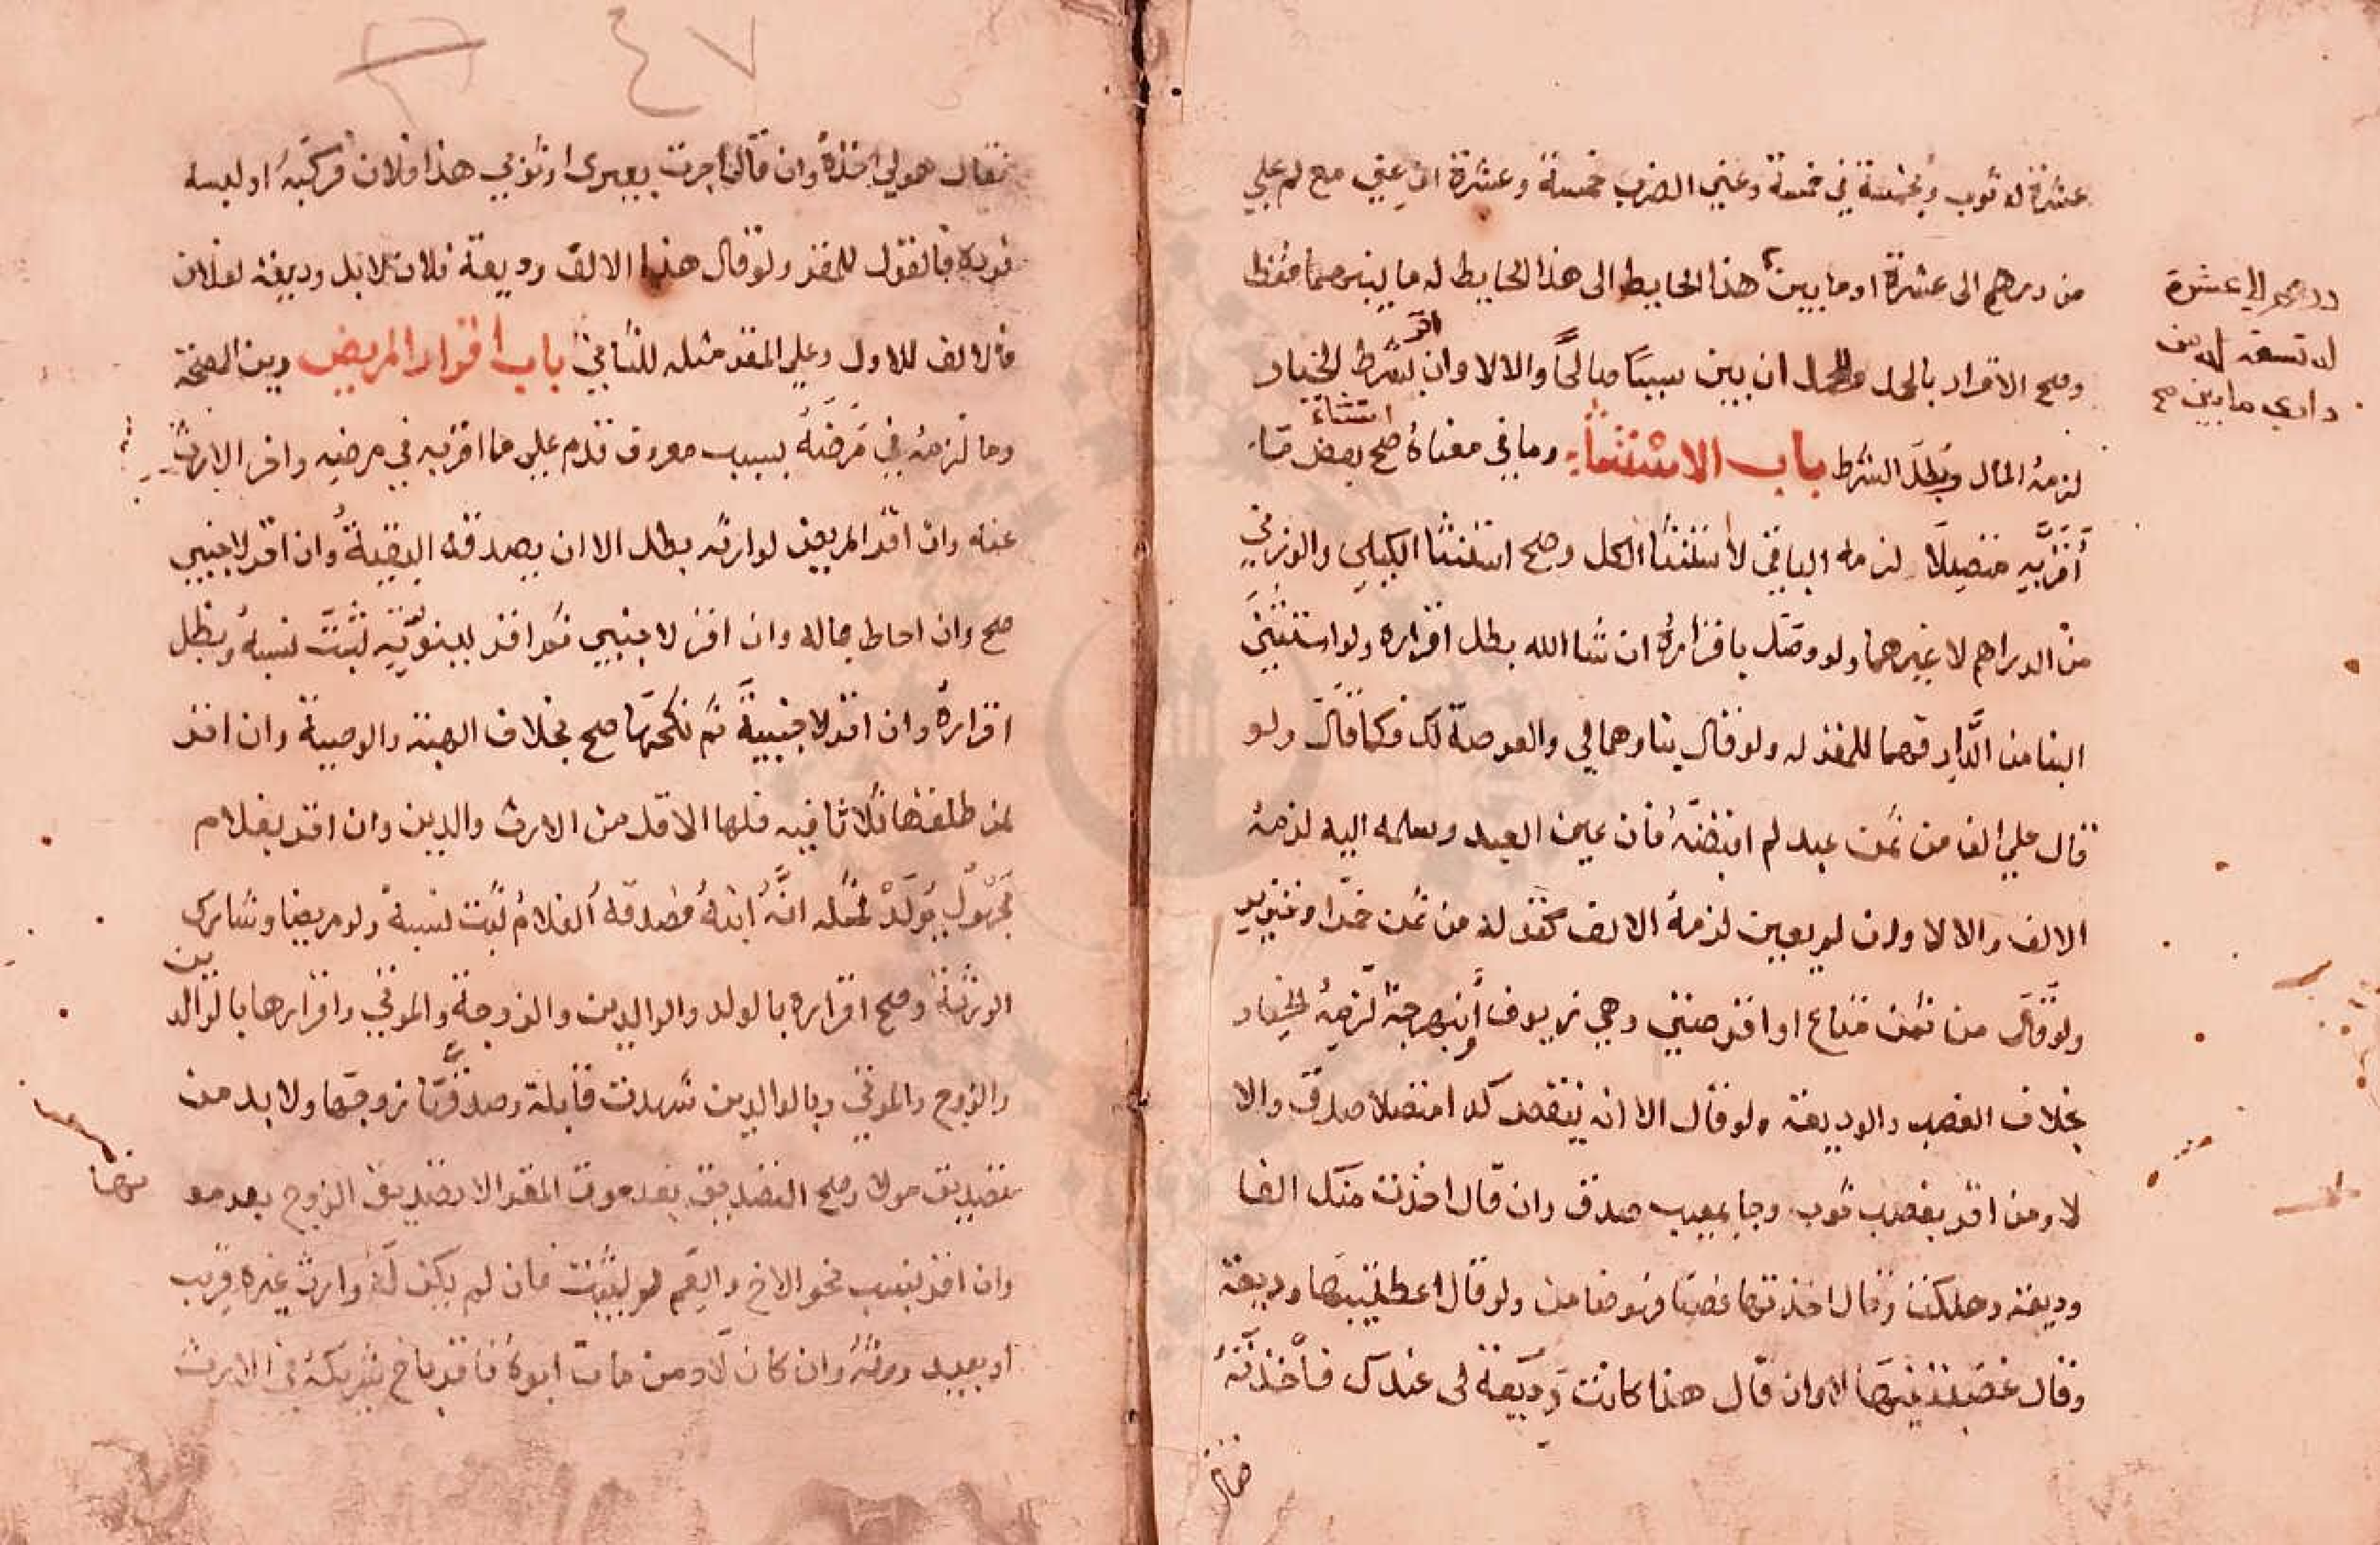 عشرة له ثوب وبخمسة في خمسة وعني الضرب خمسة وعشرة ان عني مع له علي
من درهم الى عشرة او ما بين هذا الحايط الى هذا الحايط له ما بينهما فقط
وصح الاقرار بالحمل وللحمل ان بين سببا صالحا والا لا وان اقر بشرط الخيار
لزمه المال وبطل الشرط باب الاستثناء وما في معناه صح استثناء بعض ما
أقرّ به متصلا ولزمه الباقي لا استثنا الكل وصح استثنا الكيلي والوزني
من الدراهم لا غيرهما ولو وصل باقراره ان شا الله بطل اقراره ولو استثنى
البنا من الدّار فهما للمقر له ولو قال بناوها لي والعرصة لك فكما قال ولو
قال علي الف من ثمن عبد لم اقبضه فان عين العبد وسلمه اليه لزمه
الالف والا لا وان لم يعين لزمه الالف كقوله من ثمن خمر او خنزير
ولو قال من ثمن متاع او اقرضني وهي زيوف أو نبهرجة لزمه الجياد
بخلاف الغصب والوديعة ولو قال الا انه ينقص كذا متصلا صدق والا
لا ومن اقر بغصب ثوب وجا بمعيب صدق وان قال اخذت منك الفا
وديعة وهلكت وقال اخذتها غصبا فهو ضامن ولو قال اعطيتنيها وديعة
وقال غصبتنيها لا وان قال هذا كانت وديعة لى عندك فأخذته
فقال
درهم الى عشرة
له تسعة له من
دارى ما بين صح
٤٧
فقال هو لي اخذه وان قال اجرت بعيرى او ثوبي هذا فلانا فركبه او لبسه
فرده فالقول للمقر ولو قال هذا الالف وديعة فلان لا بل وديعة لفلان
فالالف للاول وعلى المقر مثله للثاني باب اقرار المريض دين الصحة
وما لزمه في مرضه بسبب معروف قدم على ما اقر به في مرضه واخر الارث
عنه وان اقر المريض لوارثه بطل الا ان يصدقه البقية وان اقر لاجنبي
صح وان احاط بماله وان اقر لاجنبي ثم اقر ببنوّته ثبت نسبه وبطل
اقراره وان اقر لاجنبية ثم نكحها صح بخلاف الهبة والوصية وان اقر
لمن طلقها ثلاثا فيه فلها الاقل من الارث والدين وان اقر بغلام
مجهول يولد لمثله انّه ابنه وصدقه الغلام ثبت نسبه ولو مريضا وشارك
الورثة وصح اقراره بالولد والوالدين والزوجة والمولى واقرارها بالوالدين
والزوج والمولى وبالوالدين شهدت قابلة وصدقها زوجها ولا بد من
تصديق هولا وصح التصديق بعد موت المقر الا تصديق الزوج بعد مو
تها
وان اقر بنسب نحو الاخ والعم لم يثبت فان لم يكن له وارث غيره قريب
او بعيد ورثه وان كان لا ومن مات ابوه فاقر باخ شركه في الارث